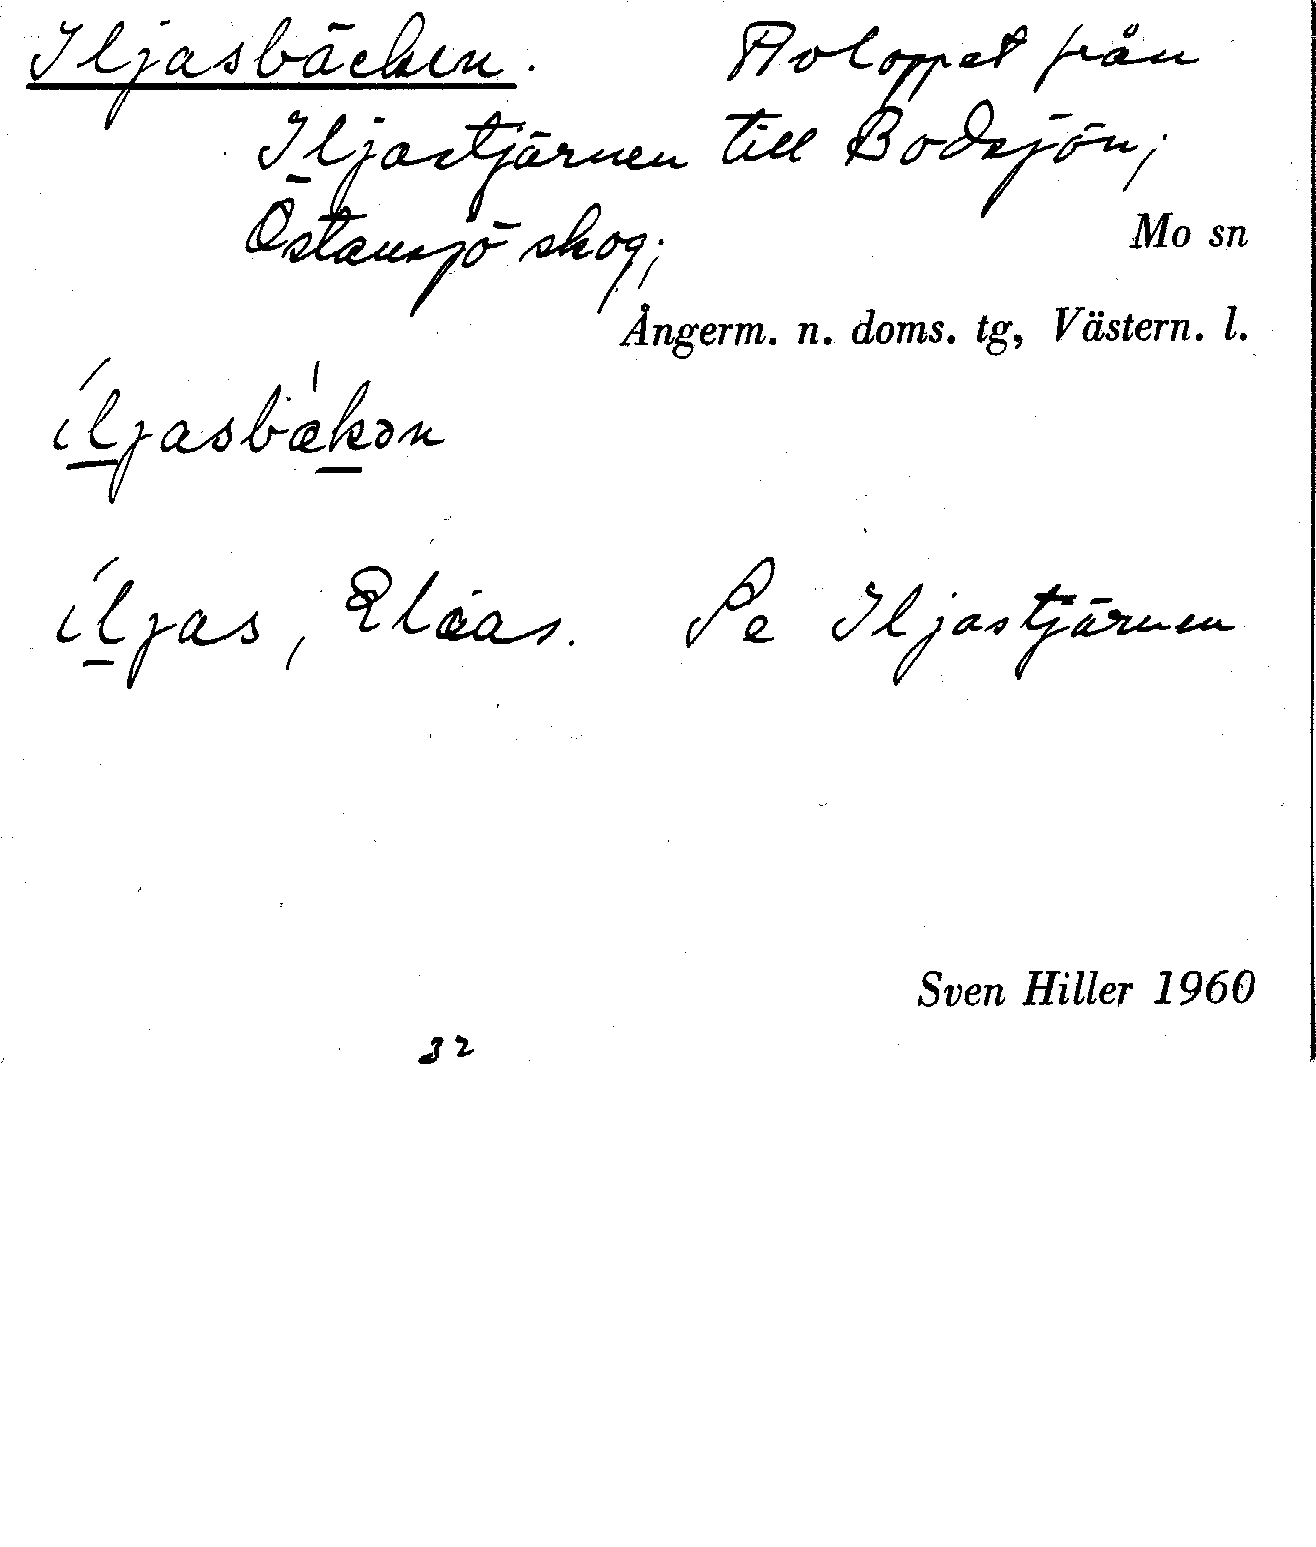 Iljasbäcken. Avloppet från
Iljastjärnen till Bodsjön;
Östansjö skog; Mo sn
Ångerm. n. doms. tg, Västern. l.
íljasbækən
íljas, Elias. Se Iljastjärnen
Sven Hiller 1960
32